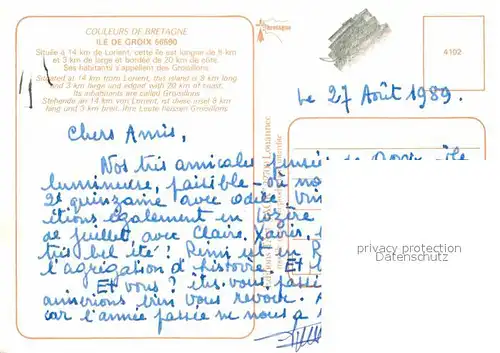 COULEURS DE BRETAGNE
ILE DE GROIX 56590
Située à 14 km de Lorient, cette île est longue de 8 km
et 3 km de large et bordée de 20 km de côte.
Ses habitants s'appellent des Groisillons.
Situated at 14 km from Lorient, this island is 8 km long
and 3 km large and edged with 20 km of coast.
Its inhabitants are called Groisillons
Stehende an 14 km von Lorient, ist diese insel 8 km
lang und 3 km breit. Ihre Leute heissen Groisillons.
Bretagne
4102
Le 27 Août 1989.
Chers Amis,
Nos très amicales pensées de île
lumineuse, paisible - où no
2e quinzaine avec Odile
étions également en Lozère
de juillet avec Claire, Xavier,
très bel été! Rémi est en R
l'agrégation d'histoire. Et
Et vous? êtes-vous passé
aimerions bien vous revoir.
car l'année passée ne nous a
privacy protection
Datenschutz